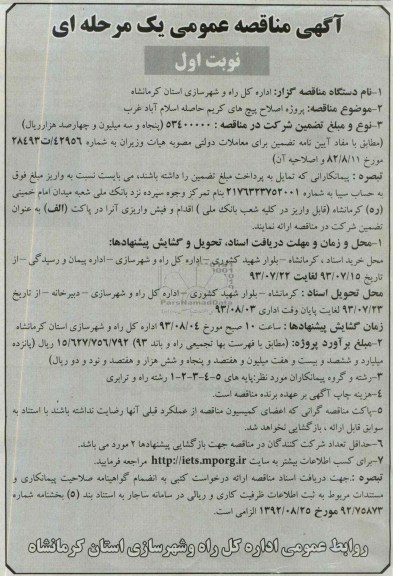 آگهی مناقصه عمومی یک مرحله ای
نوبت اول
۱-نام دستگاه مناقصه گزار: اداره کل راه و شهرسازی استان کرمانشاه
۲-موضوع مناقصه: پروژه اصلاح پیچ های کریم حاصله اسلام آباد غرب
۳-نوع و مبلغ تضمین شرکت در مناقصه : ۵۳۴۰۰۰۰۰ (پنجاه و سه میلیون و چهارصد هزارریال)
(مطابق با مفاد آیین نامه تضمین برای معاملات دولتی مصوبه هیات وزیران به شماره ۴۲۹۵۶/ت۲۸۴۹۳
مورخ ۸۲/۸/۱۱ و اصلاحیه آن)
تبصره : پیمانکارانی که تمایل به پرداخت مبلغ تضمین را داشته باشند، می بایست نسبت به واریز مبلغ فوق
به حساب سیبا به شماره ۲۱۷۶۳۲۳۷۵۲۰۰۱ بنام تمرکز وجوه سپرده نزد بانک ملی شعبه میدان امام خمینی
(ره) کرمانشاه (قابل واریز در کلیه شعب بانک ملی ) اقدام و فیش واریزی آنرا در پاکت (الف) به عنوان
تضمین شرکت در مناقصه ارائه نمایند.
۱-محل و زمان و مهلت دریافت اسناد، تحویل و گشایش پیشنهادها:
محل خرید اسناد : کرمانشاه – بلوار شهید کشوری – اداره کل راه و شهرسازی – اداره پیمان و رسیدگی – از
تاریخ ۹۳/۰۷/۱۵ لغایت ۹۳/۰۷/۲۲
محل تحویل اسناد : کرمانشاه – بلوار شهید کشوری – اداره کل راه و شهرسازی – دبیرخانه – از تاریخ
۹۳/۰۷/۲۳ لغایت پایان وقت اداری ۹۳/۰۸/۰۳
زمان گشایش پیشنهادها : ساعت ۱۰ صبح مورخ ۹۳/۰۸/۰۴ اداره کل راه و شهرسازی استان کرمانشاه
۲-مبلغ برآورد پروژه: (مطابق با فهرست بها تجمیعی راه و باند ۹۳) ۱۵/۶۲۷/۷۵۶/۷۹۲ ریال (پانزده
میلیارد و ششصد و بیست و هفت میلیون و هفتصد و پنجاه و شش هزار و هفتصد و نود و دو ریال)
۳-رشته و گروه پیمانکاران مورد نظر:پایه های ۵-۴-۳-۲-۱ رشته راه و ترابری
۴-هزینه چاپ آگهی بر عهده برنده مناقصه است.
۵-پاکت مناقصه گرانی که اعضای کمیسیون مناقصه از عملکرد قبلی آنها رضایت نداشته باشند با استناد به
سوابق قابل ارائه ، بازگشایی نخواهد شد.
۶-حداقل تعداد شرکت کنندگان در مناقصه جهت بازگشایی پیشنهادها ۲ مورد می باشد.
۷-برای کسب اطلاعات بیشتر به سایت http://iets.mporg.ir مراجعه فرمایید.
تبصره : جهت دریافت اسناد مناقصه ارائه درخواست کتبی به انضمام گواهینامه صلاحیت پیمانکاری و
مستندات مربوط به ثبت اطلاعات ظرفیت کاری و ریالی در سامانه ساجار به استناد بند (۵) بخشنامه شماره
۹۲/۷۵۸۷۳ مورخ ۱۳۹۲/۰۸/۲۵ الزامی است.
روابط عمومی اداره کل راه وشهرسازی استان کرمانشاه